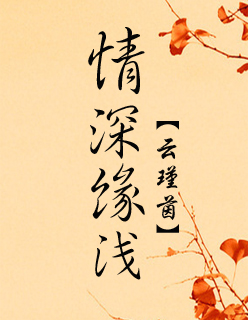 情深缘浅
【云瑾茵】